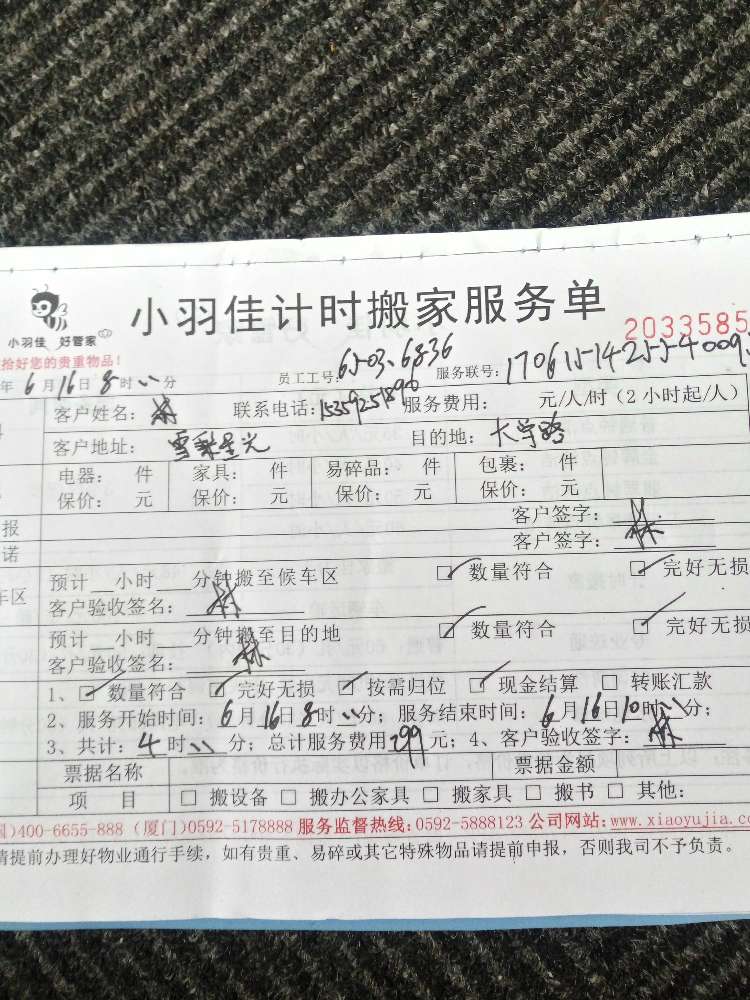 小羽佳 好管家
小羽佳计时搬家服务单
2033585
拾好您的贵重物品!
年6月16日8时 分 员工工号: 服务联号:
客户姓名:林 联系电话:15359251890 服务费用: 元/人/时(2小时起/人)
客户地址:雪梨星光 目的地:大学路
电器: 件 家具: 件 易碎品: 件 包裹: 件
保价: 元 保价: 元 保价: 元 保价: 元
报 客户签字:林
诺 客户签字:林
车区 预计 小时 分钟搬至候车区 ☑数量符合 ☑完好无损
客户验收签名:林
预计 小时 分钟搬至目的地 ☑数量符合 ☑完好无损
客户验收签名:林
1、☑数量符合 ☑完好无损 ☑按需归位 ☑现金结算 □转账汇款
2、服务开始时间:6月16日8时 分;服务结束时间:6月16日10时 分;
3、共计:4时 分;总计服务费用299元;4、客户验收签字:林
票据名称 票据金额
项 目 □搬设备 □搬办公家具 □搬家具 □搬书 □其他:
)400-6655-888 (厦门)0592-5178888 服务监督热线:0592-5888123 公司网站:www.xiaoyujia.co
请提前办理好物业通行手续,如有贵重、易碎或其它特殊物品请提前申报,否则我司不予负责。